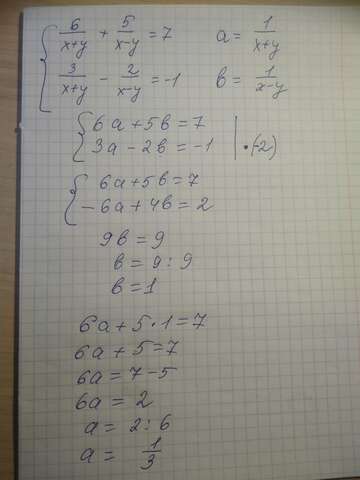 { 6/(x+y) + 5/(x-y) = 7   a = 1/(x+y)
3/(x+y) - 2/(x-y) = -1   b = 1/(x-y)
{ 6a + 5b = 7
3a - 2b = -1 | · (-2)
{ 6a + 5b = 7
-6a + 4b = 2
9b = 9
b = 9 : 9
b = 1
6a + 5 · 1 = 7
6a + 5 = 7
6a = 7 - 5
6a = 2
a = 2 : 6
a = 1/3